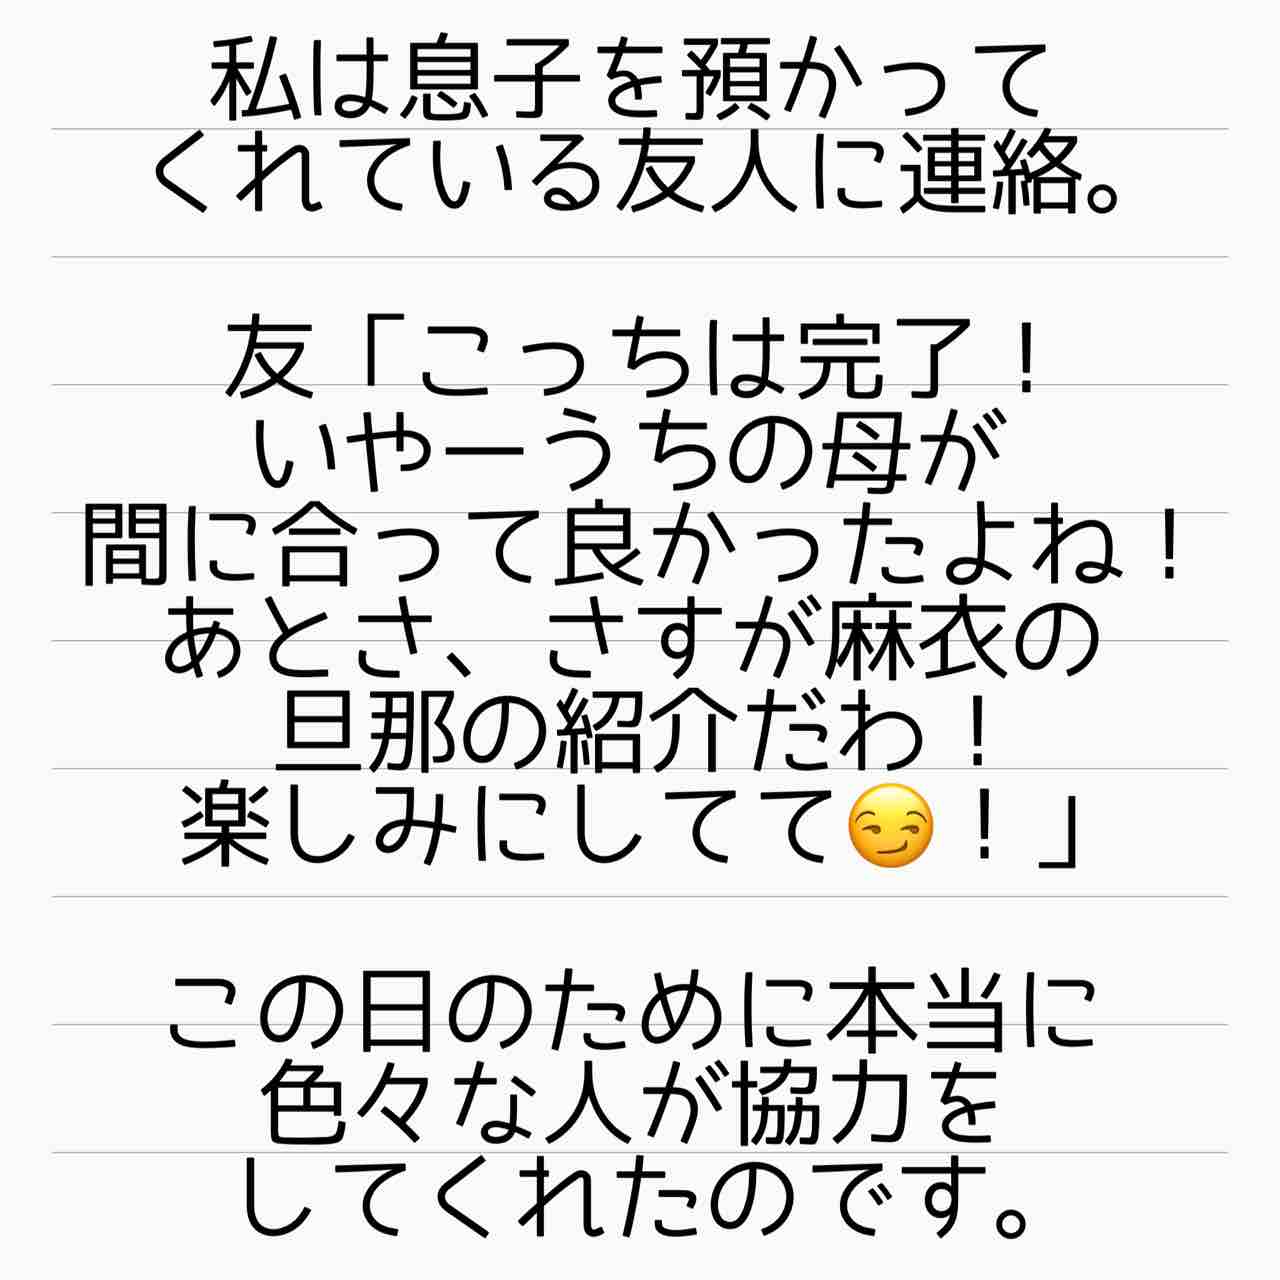 私は息子を預かって
くれている友人に連絡。
友「こっちは完了！
いやーうちの母が
間に合って良かったよね！
あとさ、さすが麻衣の
旦那の紹介だわ！
楽しみにしてて😏！」
この日のために本当に
色々な人が協力を
してくれたのです。